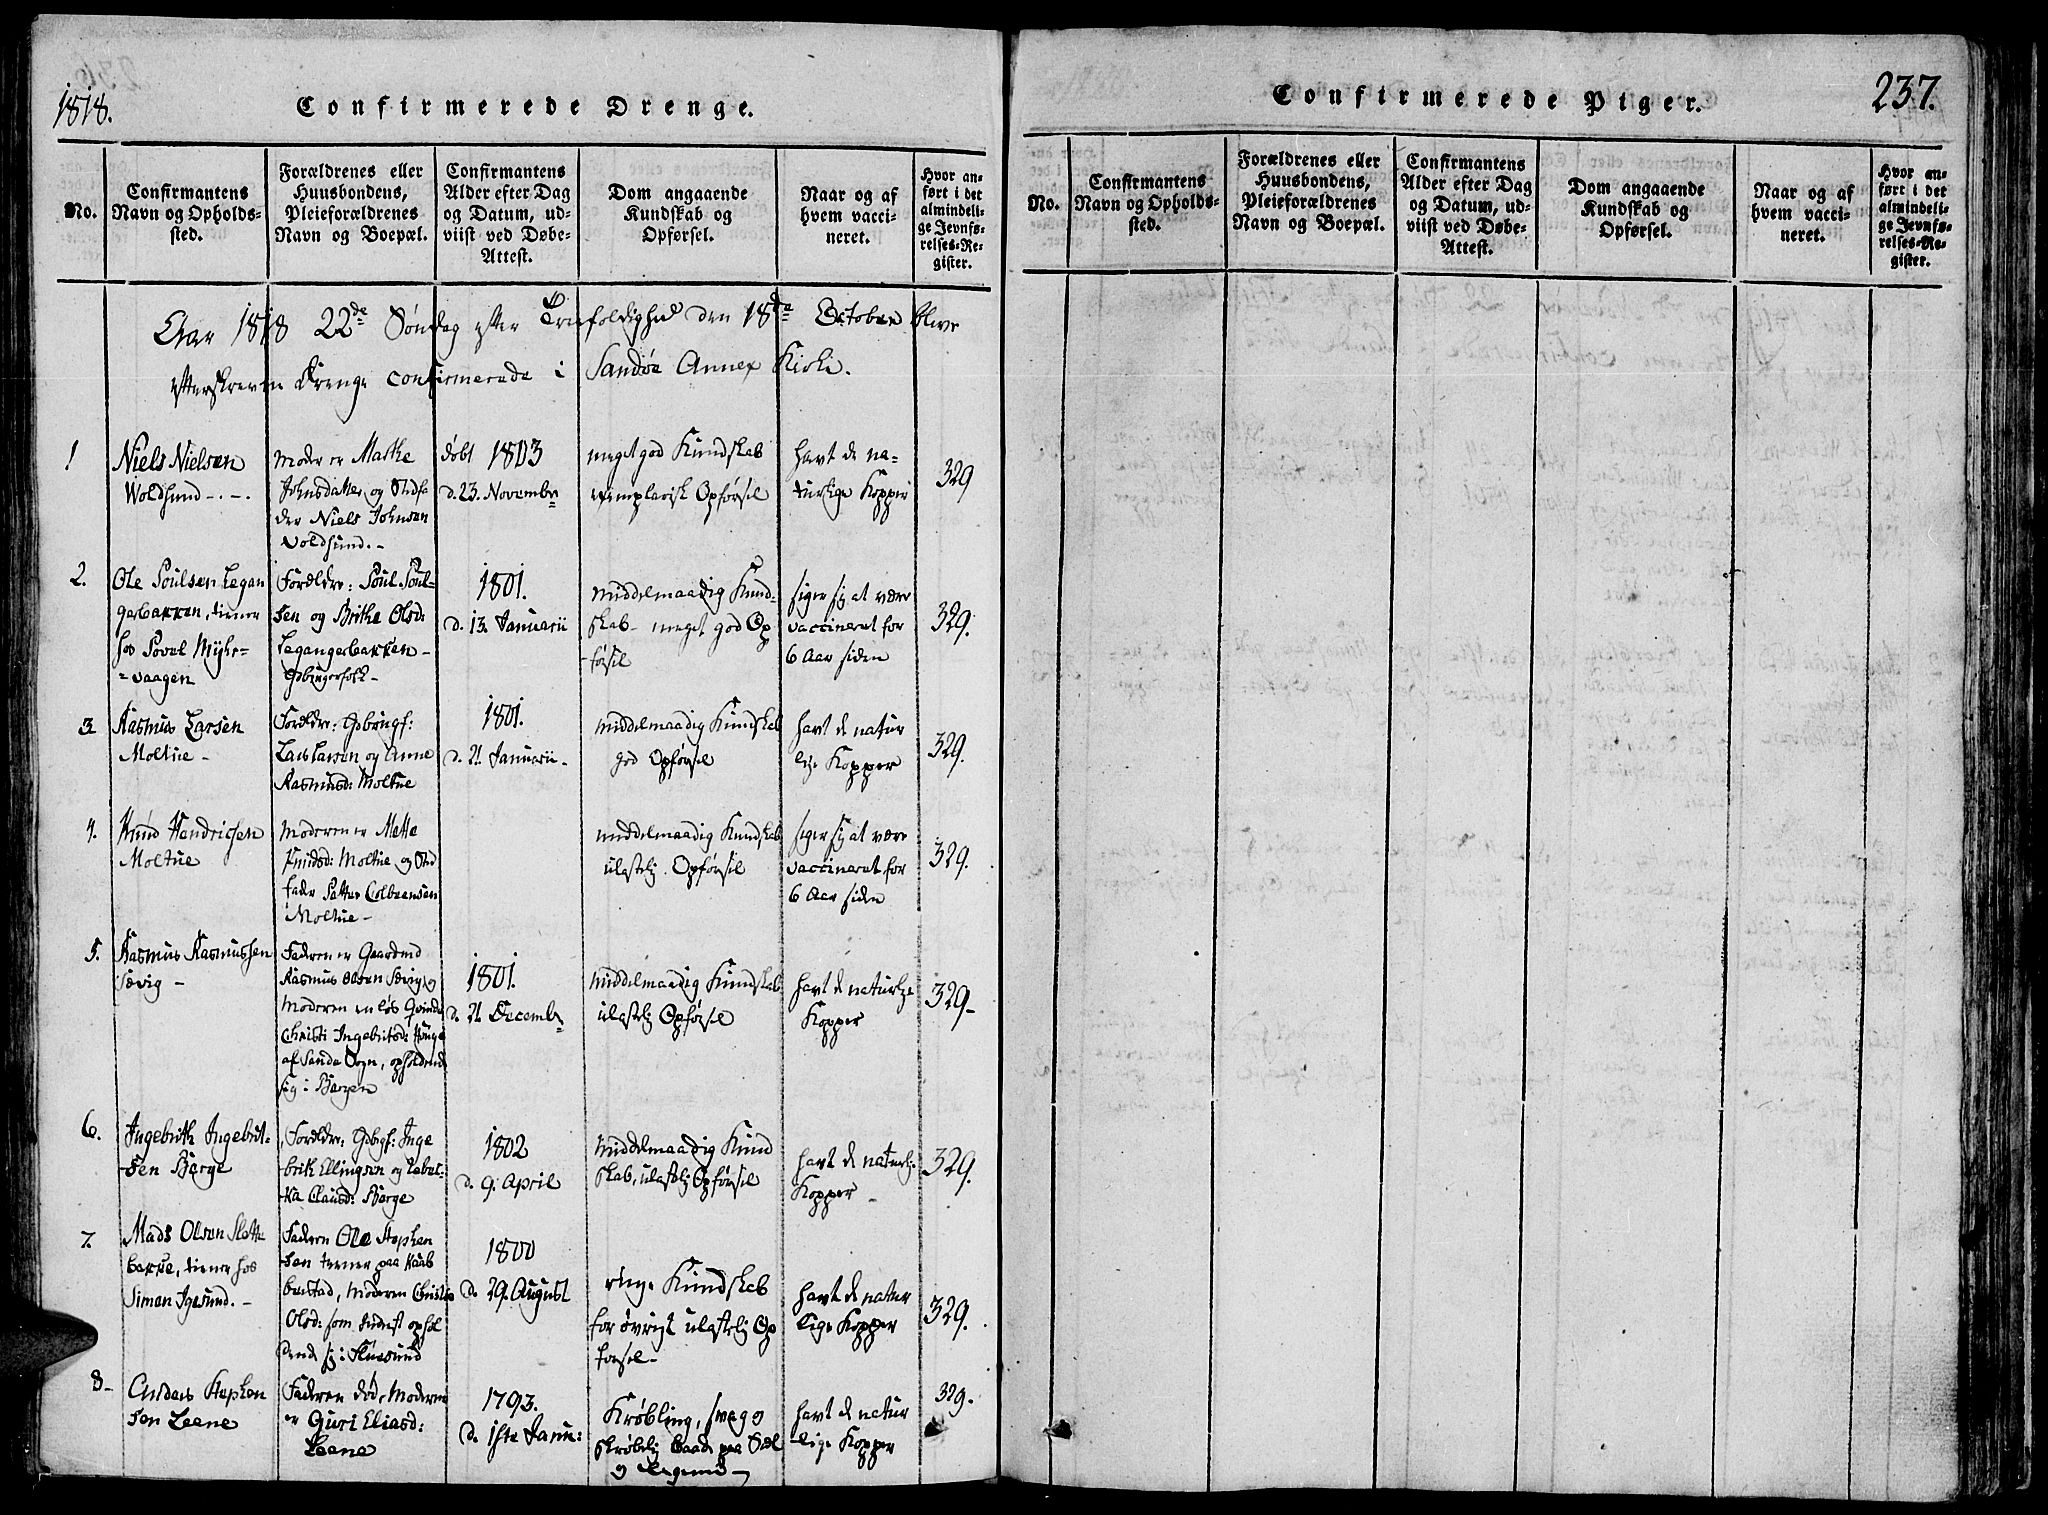 1818.
Confirmerede Drenge.
No.
Confirmantens
Navn og Opholds-
sted.
Forældrenes eller
Huusbondens,
Pleieforældrenes
Navn og Boepæl.
Confirmantens
Alder efter Dag
og Datum, ud-
viist ved Døbe-
Attest.
Dom angaaende
Kundskab og
Opførsel.
Naar og af
hvem vacci-
neret.
Hvor an-
ført i det
almindeli-
ge Jevnfø-
relses-Re-
gister.
Aar 1818 22de Søndag efter Trefoldighed den 18de October bleve
efterskrevne Drenge confirmerede i Sandøe Annex Kirke.
1
Niels Nielsen
Woldsund
Moder er Malke
Johnsdatter og Stedfa
der Niels Johnsen
Voldsund.
døbt 1803
d. 23. Novembr
meget god Kundskab
exemplarisk Opførsel
havt de na-
turlige Kopper
329
2.
Ole Poulsen Legan
gerbakken, tiener
hos Povel Myhr-
vaagen
Forældre: Poul Poul-
sen og Brithe Olsd:
Legangerbakken
1801.
d. 13. Januarii
middelmaadig Kund-
skab - meget god Op
førsel
siger sig at være
vaccineret for
6 Aar siden
329.
3
Rasmus Larsen
Moltue
Forældre:
Lars Larsen og Anne
Rasmusd: Moltue
1801.
d. 21. Januarii
middelmaadig Kundskab
god Opførsel
havt de natur
lige Kopper
329.
4.
Knud Hendricsen
Moltue
Moderen er Mette
Knudsd: Moltue og Sted
fader Petter Colbeensen
Moltue
middelmaadig Kundskab
ulastelig Opførsel
siger sig at være
vaccineret for
6 Aar siden
329.
5.
Rasmus Rasmussen
Sævig
Faderen er Gaardmd
Rasmus Olsen Sævig og
Moderen en løs Qvinde
Christi Ingebritsd:
af Sande Sogn, opholdende
sig i Bergen
1801.
d. 21 Decembr
middelmaadig Kundskab
ulastelig Opførsel
havt de naturlige
Kopper
329
6.
Ingebrith Ingebrit-
sen Berge
Forældre: Inge
brith Ellingsen og
Clausd: Berge
1802
d. 9. April
middelmaadig Kund
skab, ulastelig Opførsel
havt de naturlige
Kopper
329.
7.
Mads Olsen Slette
bakke, tiener hos
Simen Igesund.
Faderen Ole Stephen
sen tiener paa
Moderen
Olsd: som ophol
dende sig i
1800
d. 29. August
ringe Kundskab
for øvrigt ulastelig Op
førsel
havt de natur
lige Kopper
329.
8
Anders Stephen
sen Leene
Faderen død, Moderen
er Guri Eliasd:
Leene
1793.
d. 1ste Janu:
Krøbling, svag og
skrøbelig baade paa Siæl
og Legeme
havt de natur
lige Kopper
329.
Confirmerede Piger.
237.
No.
Confirmantens
Navn og Opholds-
sted.
Forældrenes eller
Huusbondens,
Pleieforældrenes
Navn og Boepæl.
Confirmantens
Alder efter Dag
og Datum, ud-
viist ved Døbe-
Attest.
Dom angaaende
Kundskab og
Opførsel.
Naar og af
hvem vacci-
neret.
Hvor an-
ført i det
almindeli-
ge Jevnfø-
relses-Re-
gister.